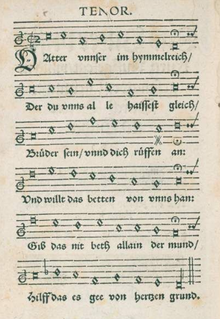 TENOR.
VAtter vnnser im hymmelreich/
Der du vnns al le haissest gleich/
Brüder sein/vnnd dich rüffen an:
Vnd willt das betten von vnns han:
Gib das nit beth allain der mund/
Hilff das es gee von hertzen grund.